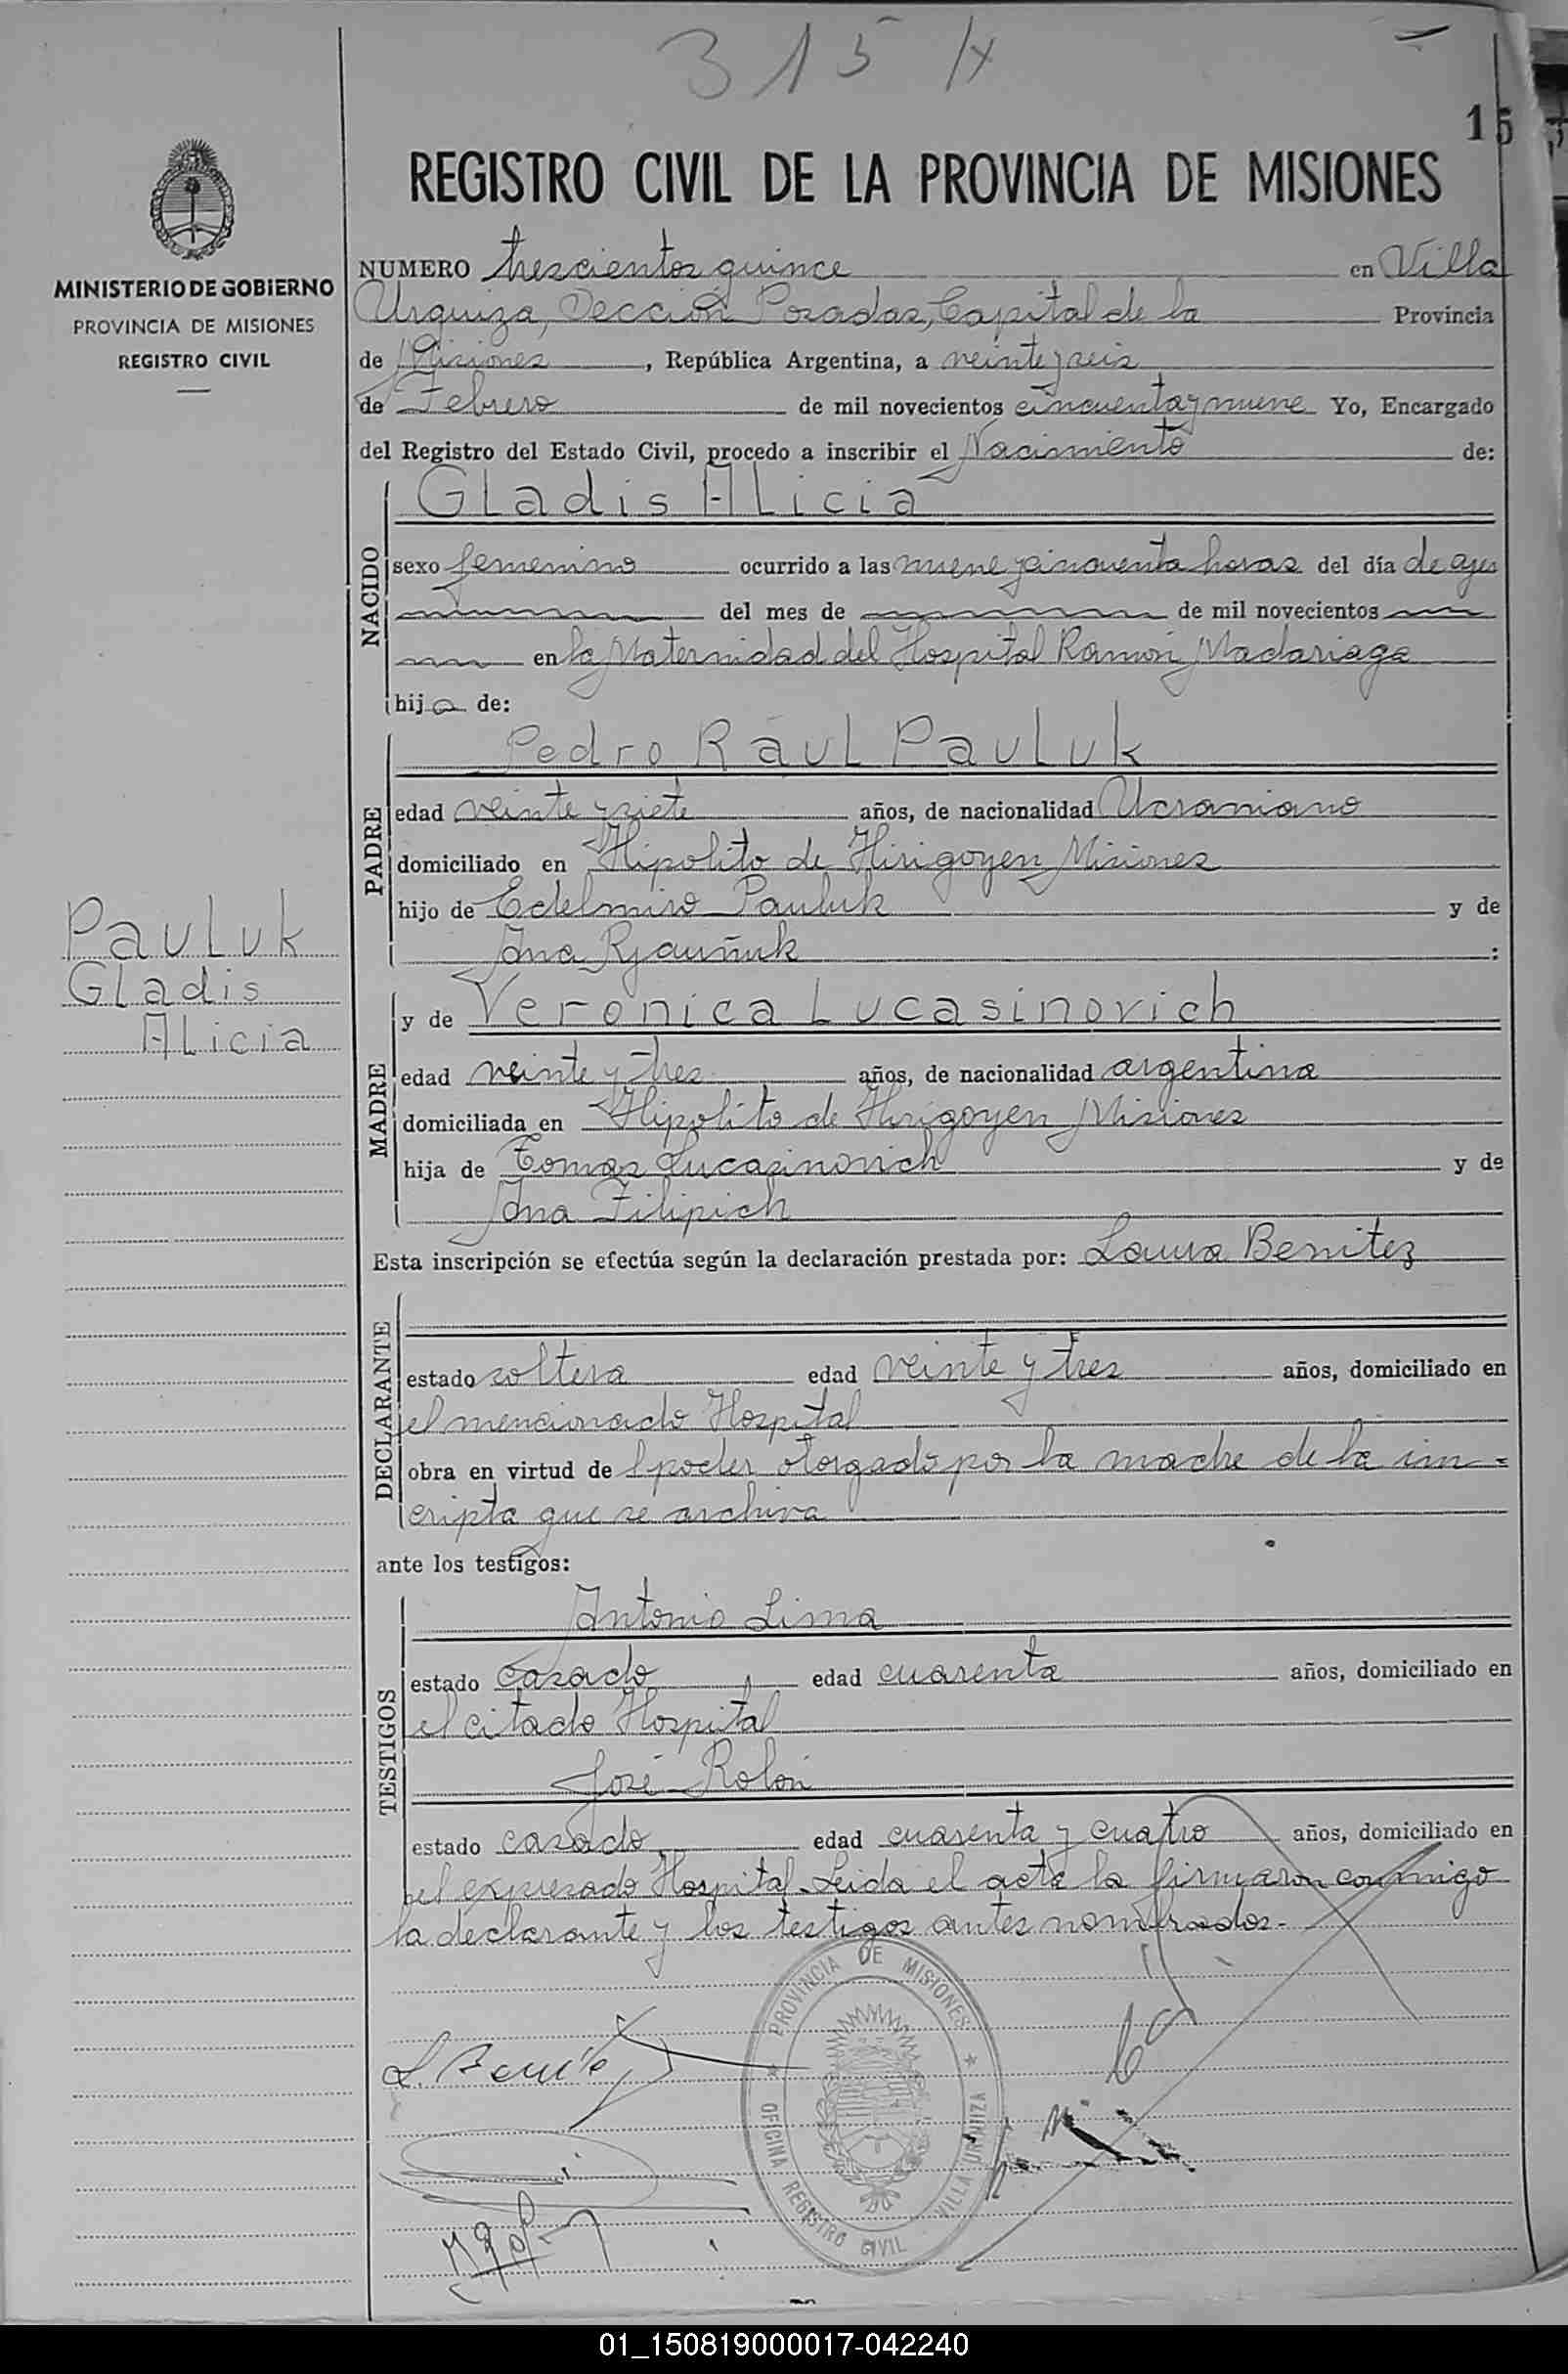 315
15
REGISTRO CIVIL DE LA PROVINCIA DE MISIONES
MINISTERIO DE GOBIERNO
PROVINCIA DE MISIONES
REGISTRO CIVIL
NUMERO trescientos quince en Villa
Urquiza, Sección Posadas, Capital de la Provincia
de Misiones, República Argentina, a veinte y seis
de Febrero de mil novecientos cincuenta y nueve Yo, Encargado
del Registro del Estado Civil, procedo a inscribir el Nacimiento de:
NACIDO
Gladis Alicia
sexo femenino ocurrido a las nueve y cincuenta horas del día de ayer
del mes de de mil novecientos
en la Maternidad del Hospital Ramón Madariaga
hija de:
PADRE
Pedro Raúl Pauluk
edad veinte y siete años, de nacionalidad Ucraniano
domiciliado en Hipolito de Hirigoyen Misiones
hijo de Edelmiro Pauluk y de
Ana :
Pauluk
Gladis
Alicia
MADRE
y de Veronica Lucasinovich
edad veinte y tres años, de nacionalidad argentina
domiciliada en Hipolito de Hirigoyen Misiones
hija de Tomas Lucasinovich y de
Ana Filipich
Esta inscripción se efectúa según la declaración prestada por: Laura Benitez
DECLARANTE
estado soltera edad veinte y tres años, domiciliado en
el mencionado Hospital
obra en virtud de l poder otorgado por la madre de la ins=
cripta que se archiva
ante los testigos:
TESTIGOS
Antonio Lima
estado casado edad cuarenta años, domiciliado en
el citado Hospital
José Rolón
estado casado edad cuarenta y cuatro años, domiciliado en
el expresado Hospital. Leida el acta la firmaron conmigo
la declarante y los testigos antes nombrados.-
PROVINCIA DE MISIONES
OFICINA REGISTRO CIVIL VILLA URQUIZA
L. Benitez
01_150819000017-042240